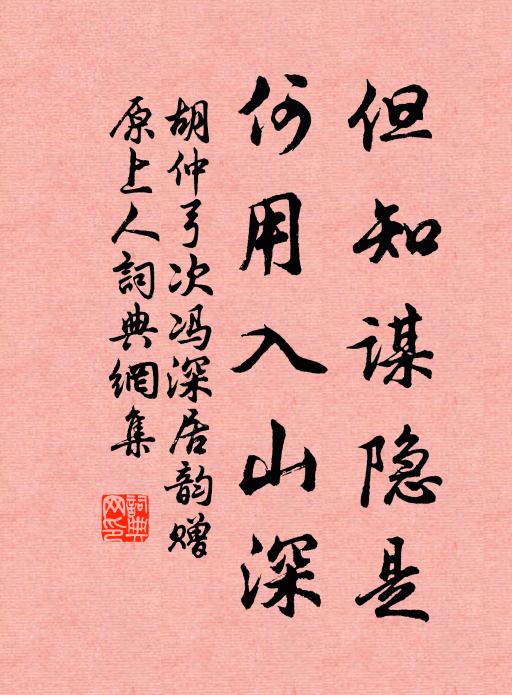 但知谋隐是
何用入山深
胡仲弓次冯深居韵赠
原上人詞典網集
詞典网印